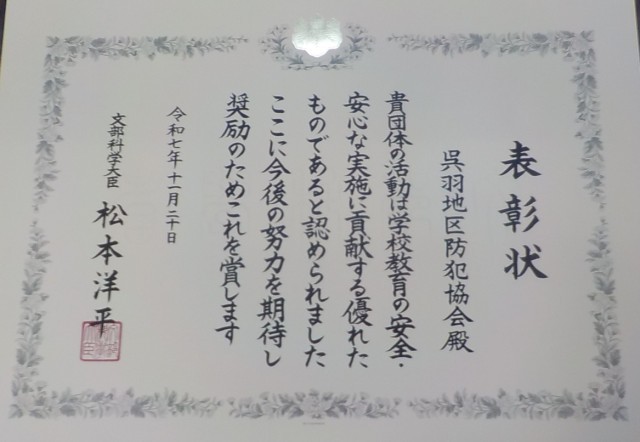 表彰状
呉羽地区防犯協会殿
貴団体の活動は学校教育の安全・
安心な実施に貢献する優れた
ものであると認められました
ここに今後の努力を期待し
奨励のためこれを賞します
令和七年十一月二十日
文部科学大臣 松本洋平